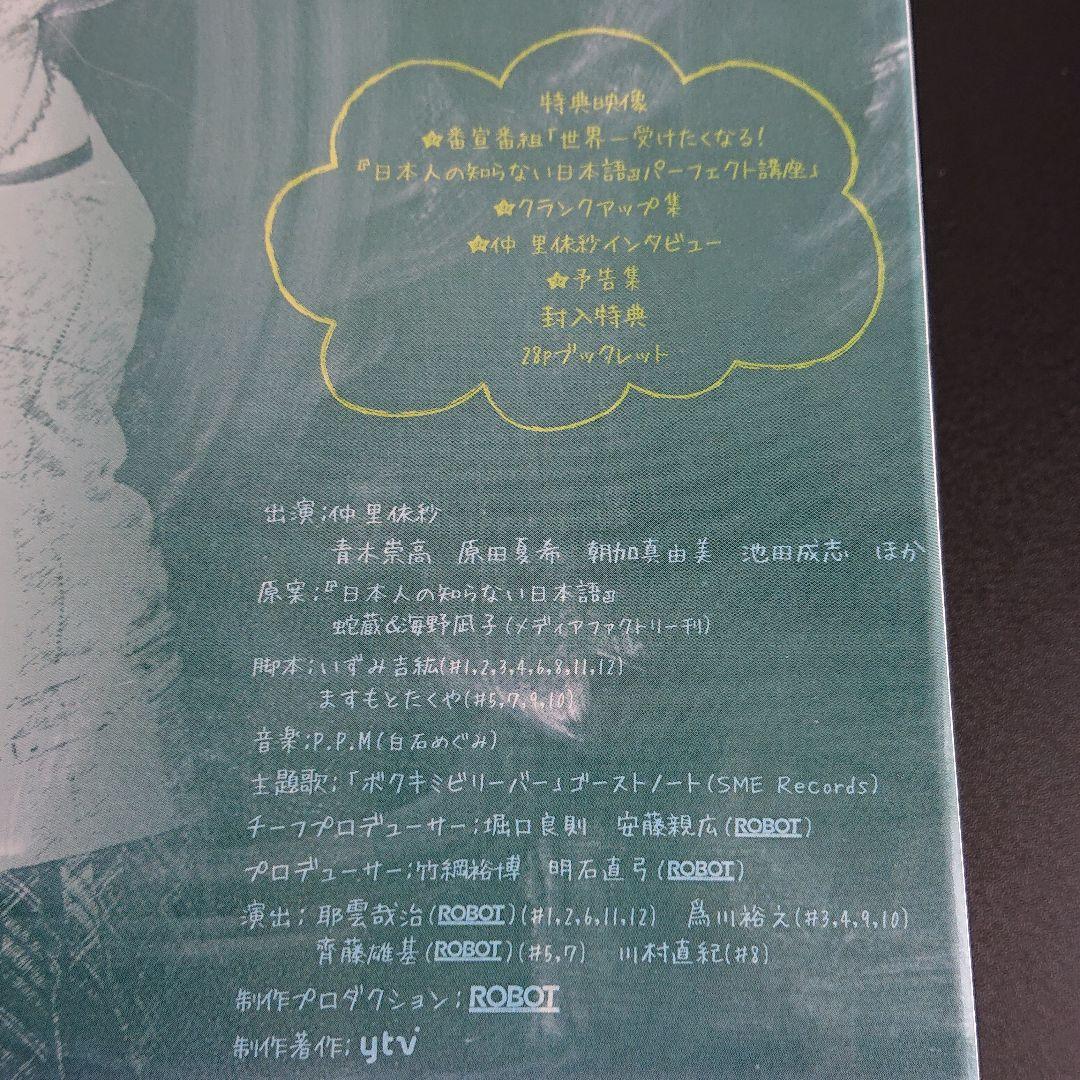 特典映像
★番宣番組「世界一受けたくなる!
『日本人の知らない日本語』パーフェクト講座」
★クランクアップ集
★仲 里依紗インタビュー
★予告集
封入特典
28pブックレット
出演;仲 里依紗
青木崇高 原田夏希 朝加真由美 池田成志 ほか
原案;『日本人の知らない日本語』
蛇蔵&海野凪子(メディアファクトリー刊)
脚本;いずみ吉紘(#1,2,3,4,6,8,11,12)
ますもとたくや(#5,7,9,10)
音楽;P.P.M(白石めぐみ)
主題歌;「ボクキミビリーバー」ゴーストノート(SME Records)
チーフプロデューサー;堀口良則 安藤親広(ROBOT)
プロデューサー;竹綱裕博 明石直弓(ROBOT)
演出;耶雲哉治(ROBOT)(#1,2,6,11,12) 爲川裕之(#3,4,9,10)
齊藤雄基(ROBOT)(#5,7) 川村直紀(#8)
制作プロダクション;ROBOT
制作著作;ytv